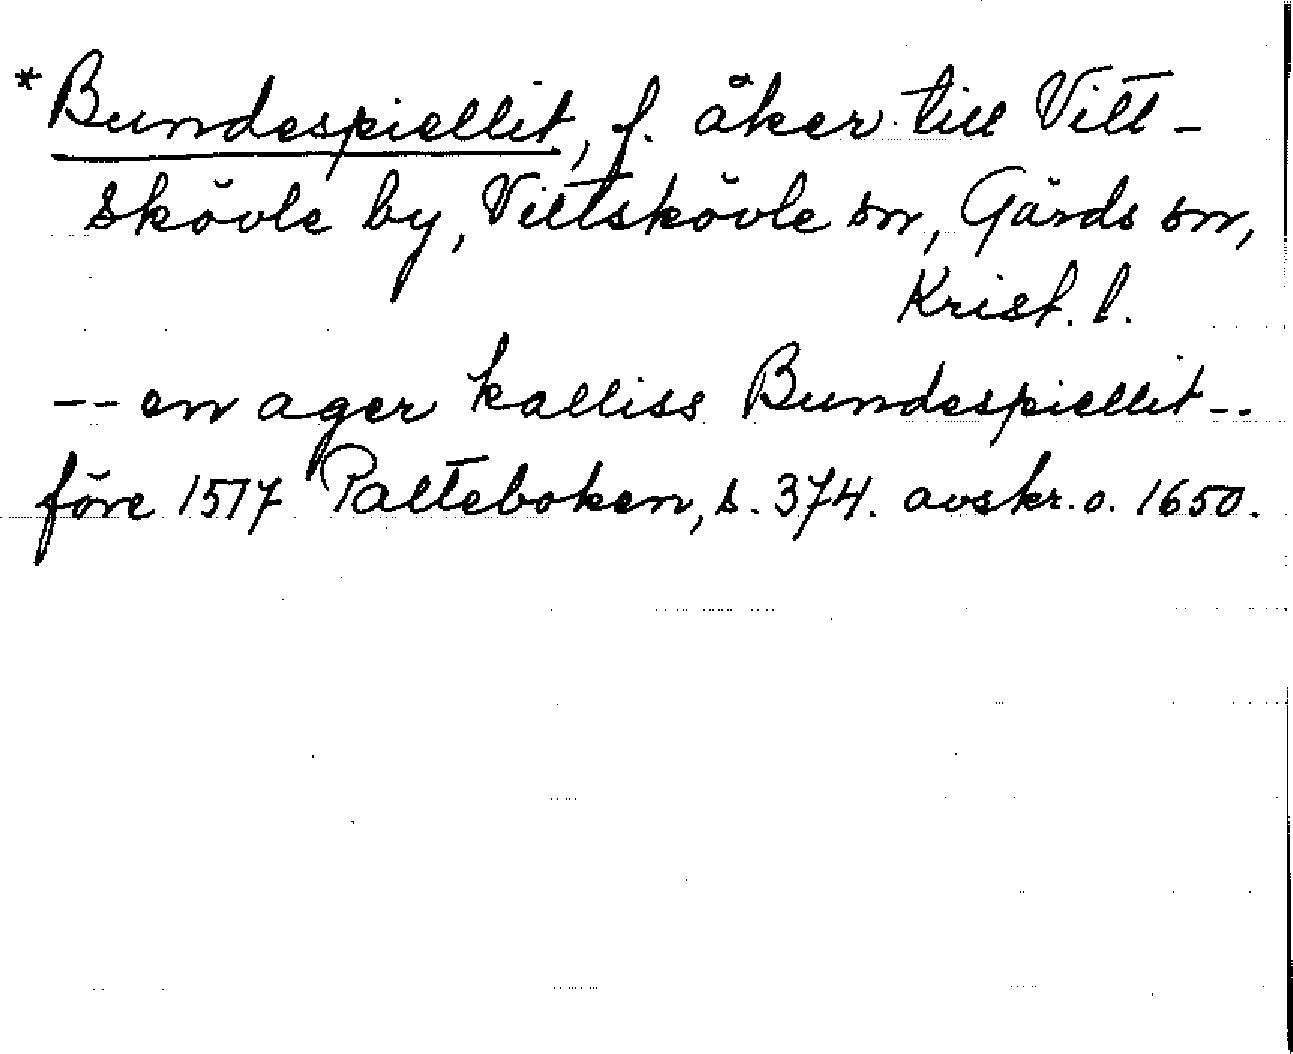 *Bundespiellit, f. åker till Vitt-
skövle by, Vittskövle sn, Gärds sn,
Krist. l.
-- en ager kalliss Bundespiellit --
före 1517 Palteboken, s. 374. avskr. o. 1650.